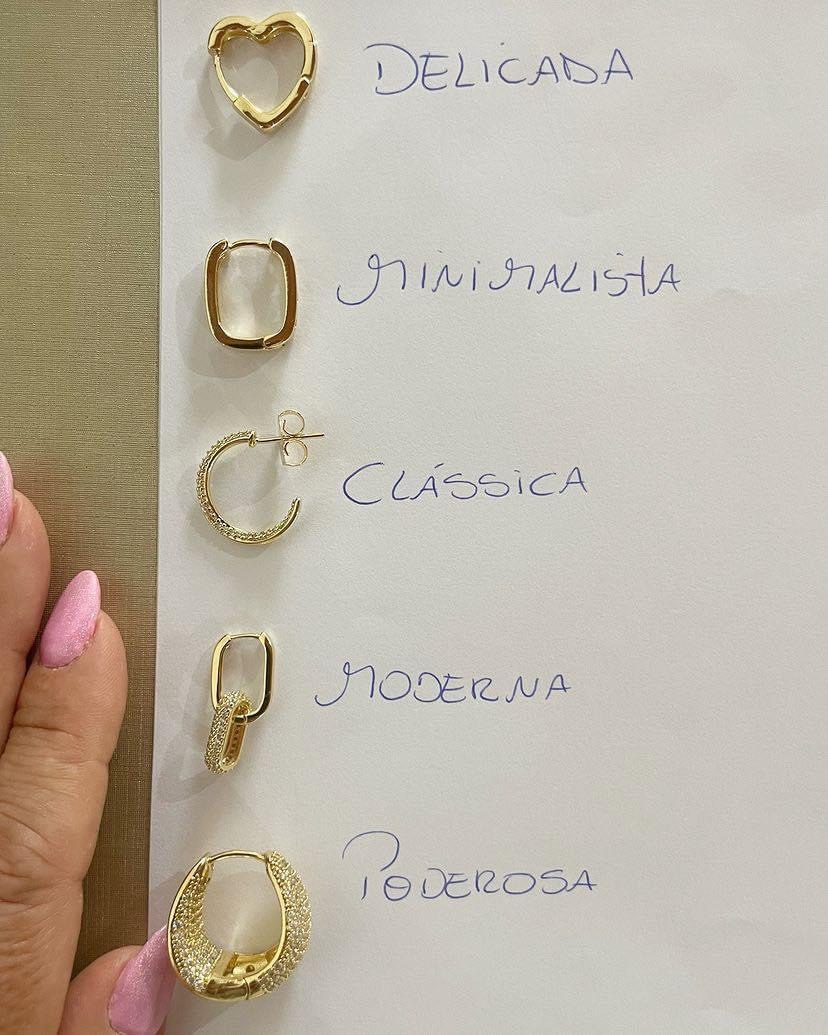 DELICADA
MINIMALISTA
CLÁSSICA
MODERNA
PODEROSA